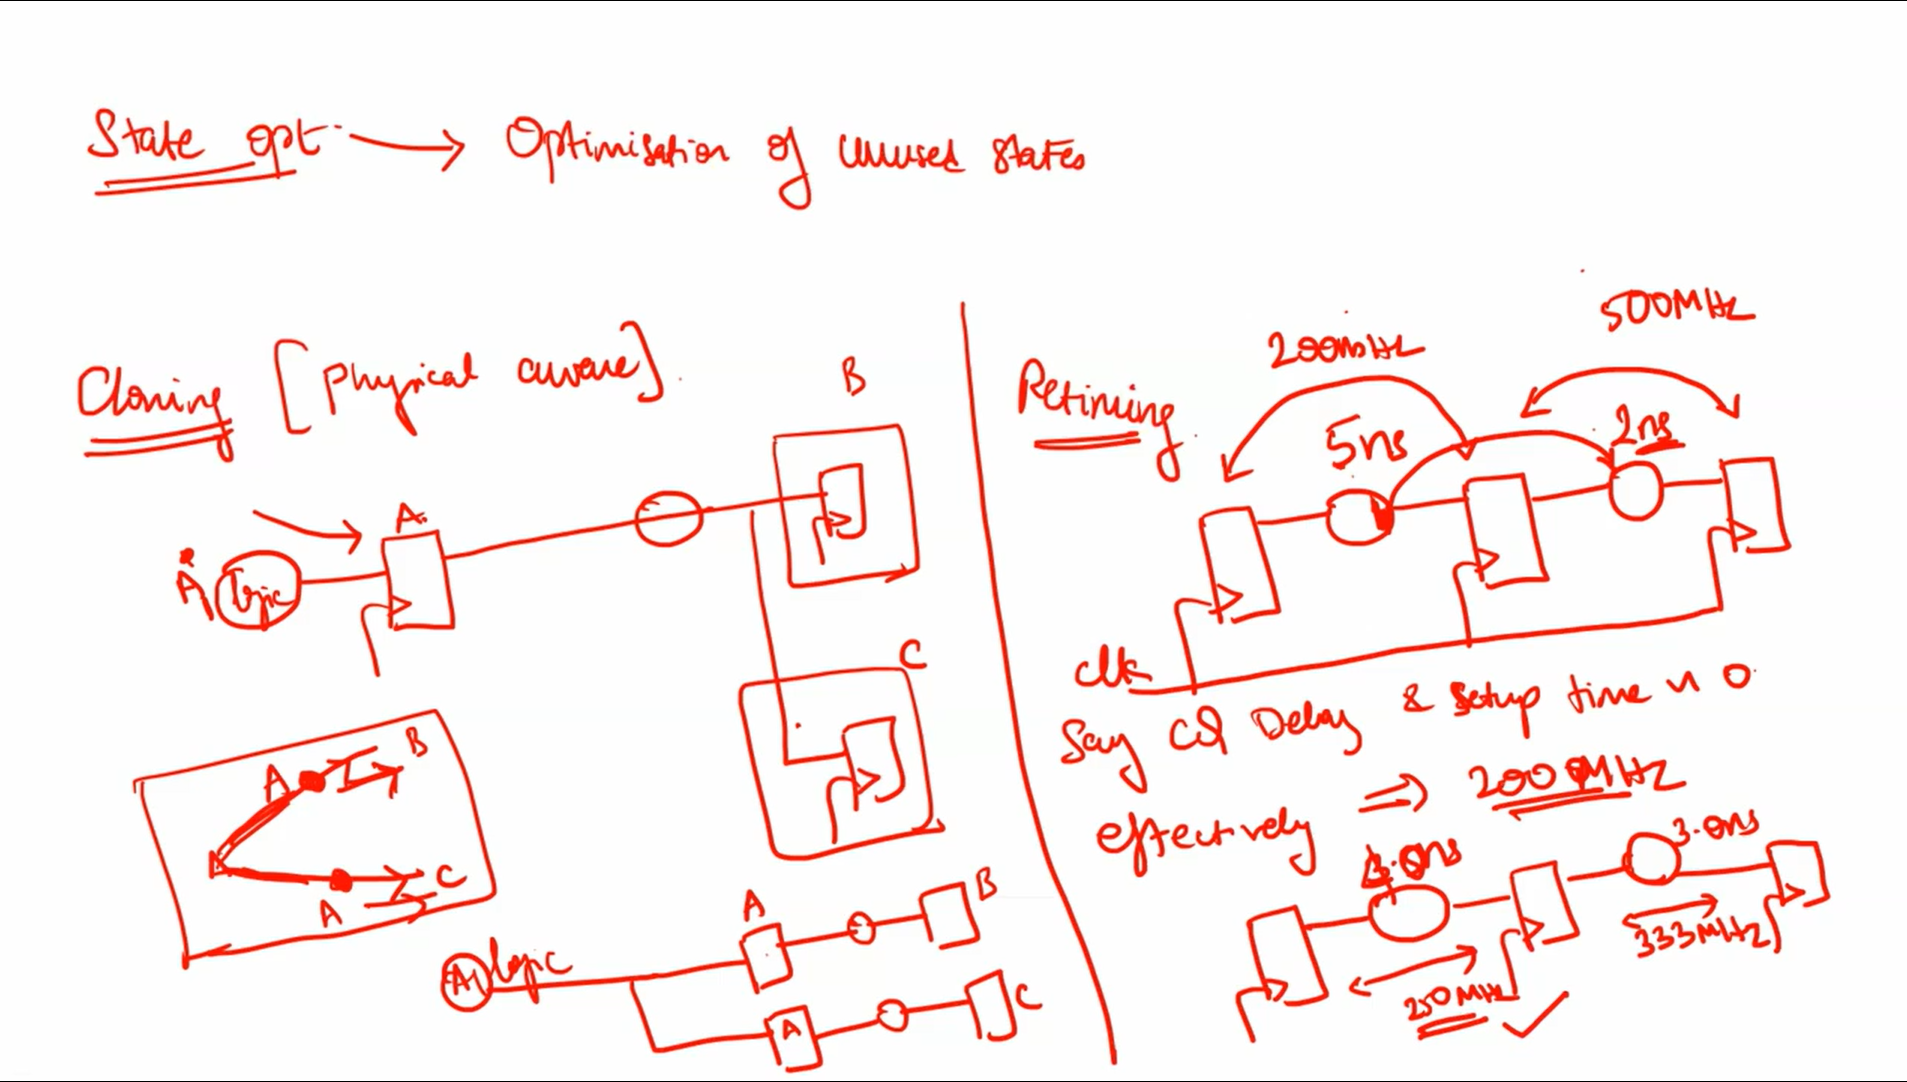 State opt → Optimisation of unused states
Cloning [Physical aware]
B
A
A1 logic
C
A B
A
C
A
A1 logic
A
B
A
C
Retiming
200MHz
500MHz
5ns
2ns
clk
Say CQ Delay & Setup time is 0
effectively ⇒ 200MHz
4.0ns
3.0ns
250MHz
333MHz